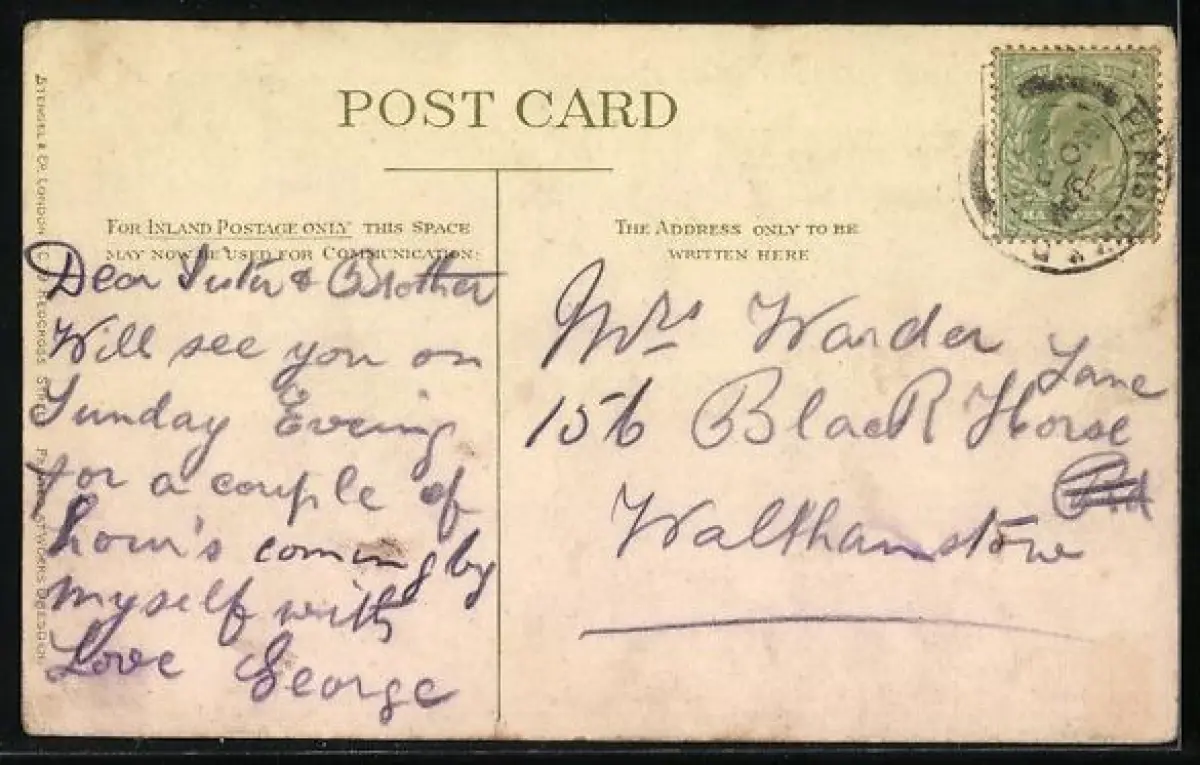 POST CARD
FOR INLAND POSTAGE ONLY THIS SPACE
MAY NOW BE USED FOR COMMUNICATION:
THE ADDRESS ONLY TO BE
WRITTEN HERE
Dear Sister & Brother
Will see you on
Sunday Evening
for a couple of
hour's coming by
myself with
Love George
Mrs Warder
156 Black Horse Lane
Walthamstow
STENGEL & Co. LONDON REDCROSS